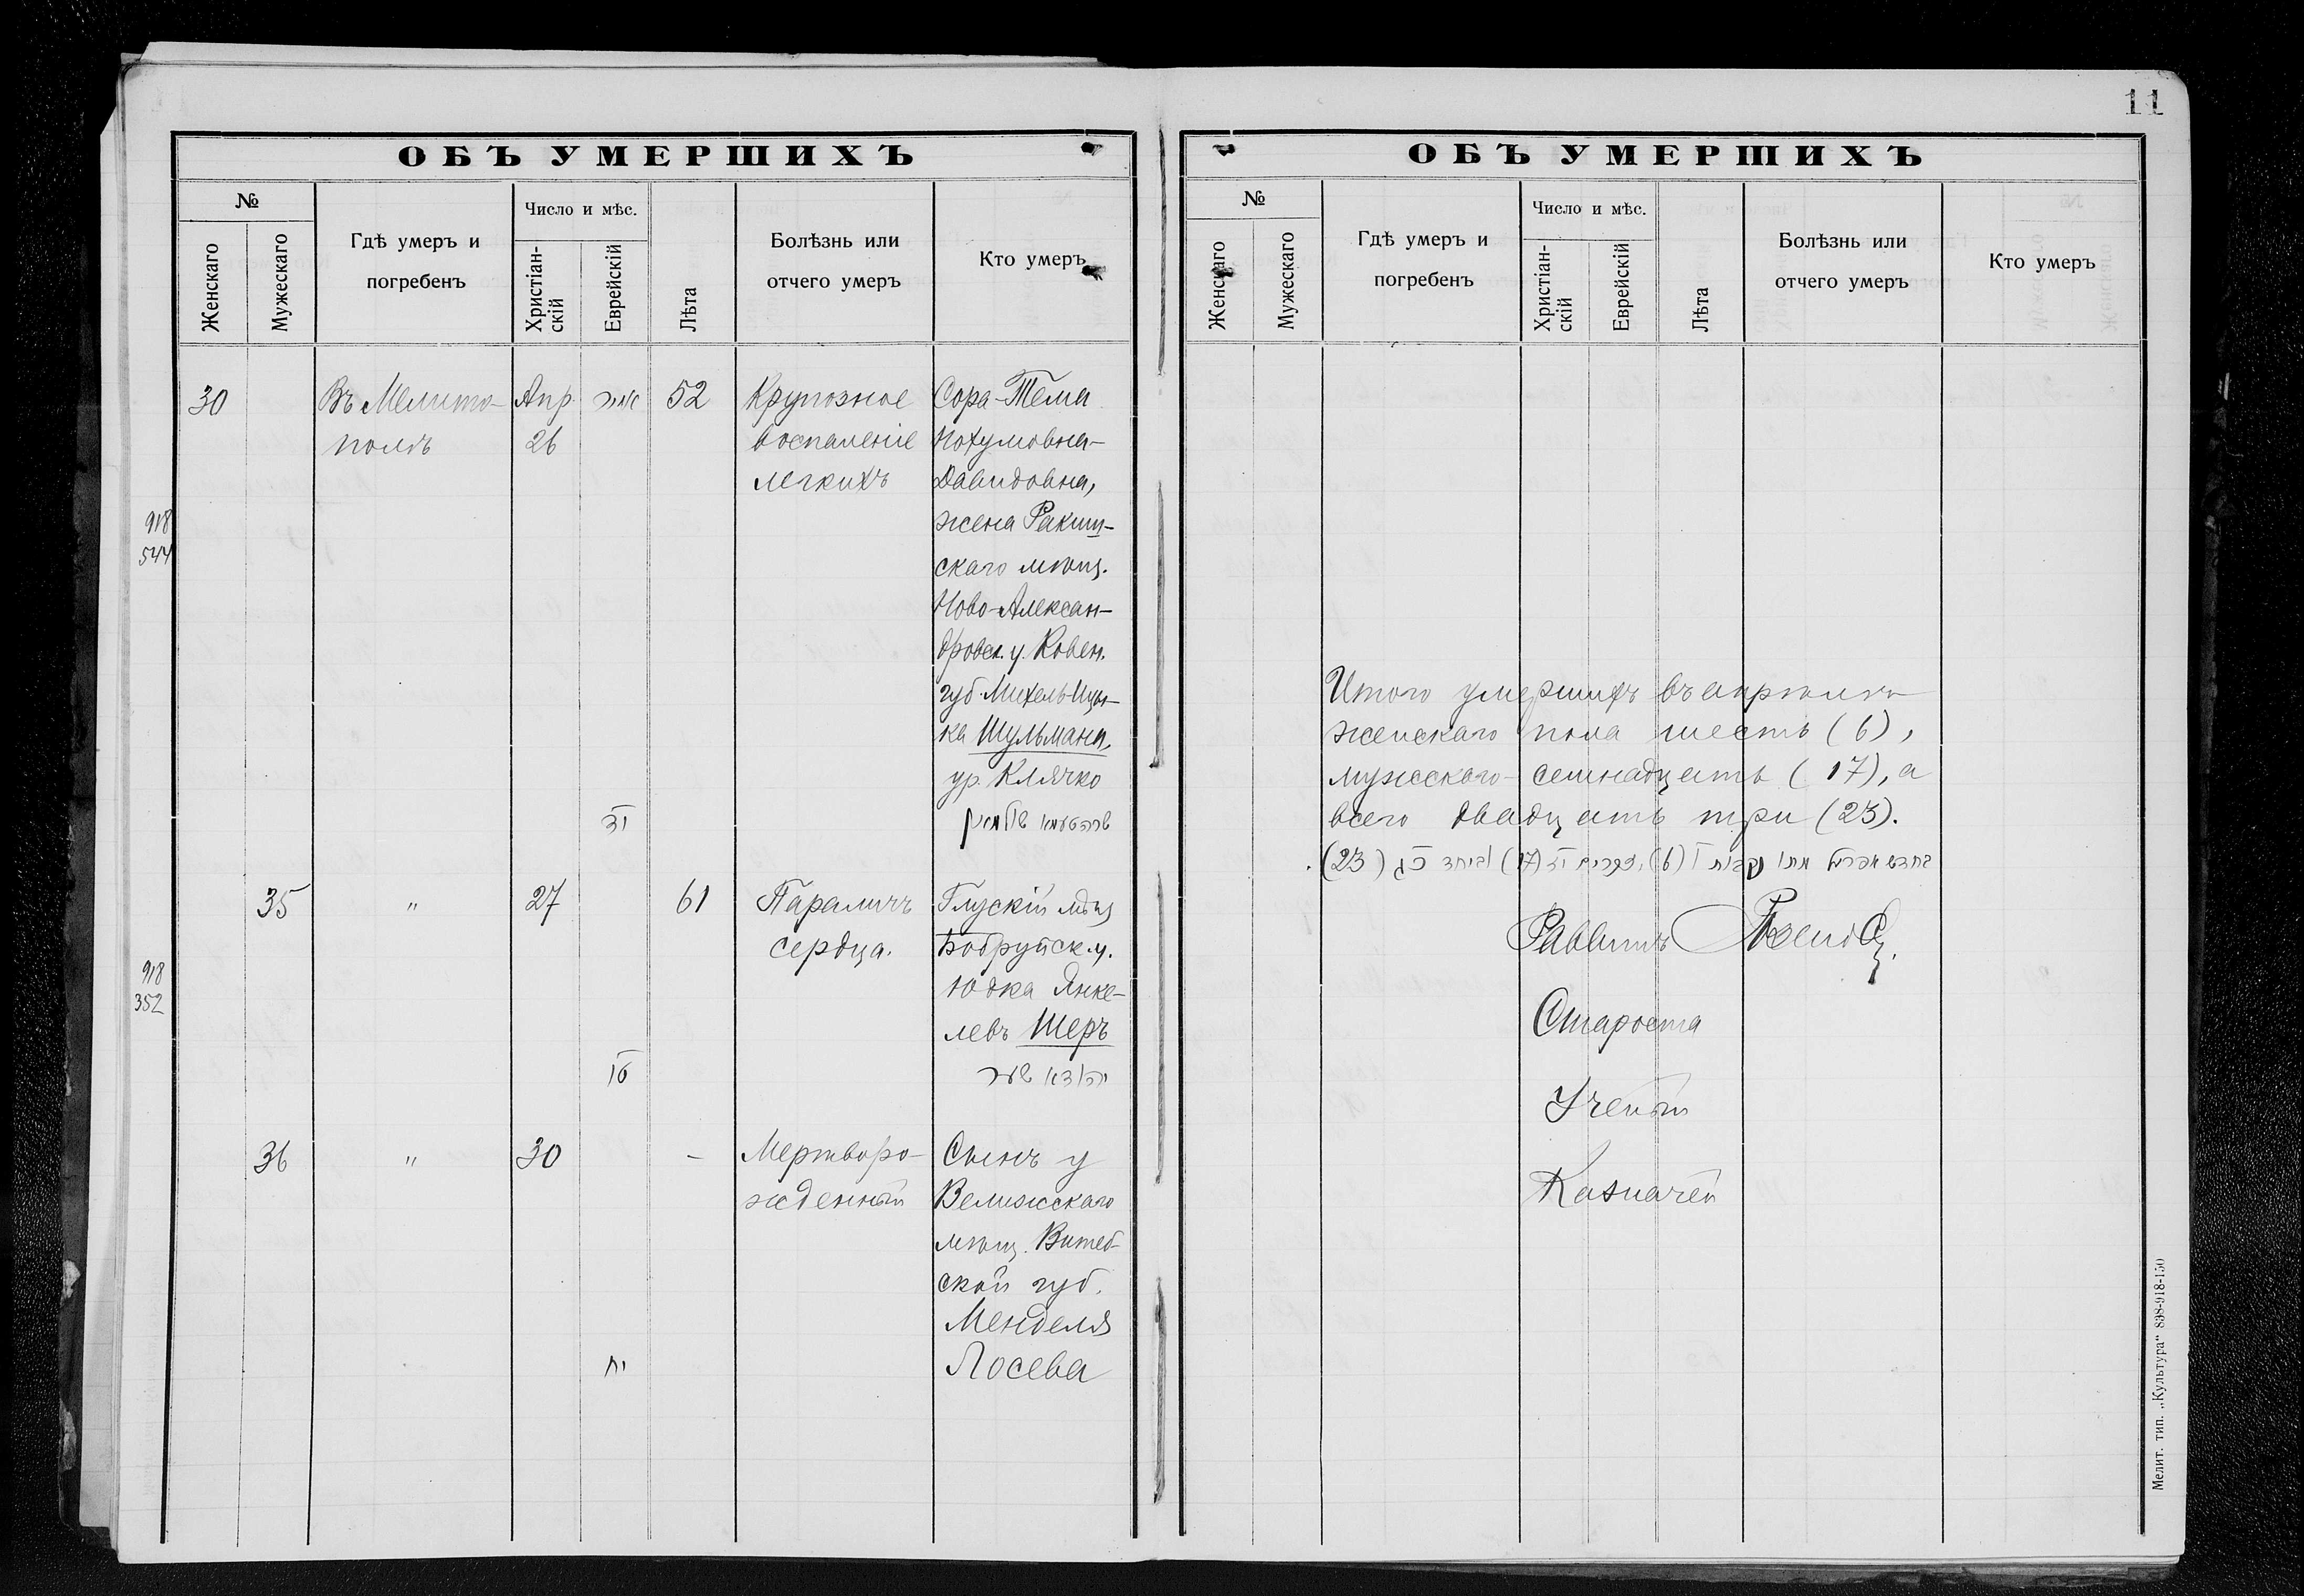 11
ОБЪ УМЕРШИХЪ
№
Женскаго
Мужескаго
Гдѣ умеръ и
погребенъ
Число и мѣс.
Христіан-
скій
Еврейскій
Лѣта
Болѣзнь или
отчего умеръ
Кто умеръ
30
Въ Мелито-
полѣ
Апр.
26
52
Крупозное
воспаленіе
легкихъ
Сора-Тема
Нохумовна-
Давидовна,
жена Ракиш-
скаго мѣщ.
Ново-Алексан-
дровск. у. Ковен.
губ. Михель-Иц-
ка Шульмана,
ур. Клячко
יד
918
544
35
"
27
61
Параличъ
сердца.
Глускій мѣщ
Бобруйск. у.
Юдка Янке-
левъ Шеръ
918
352
36
"
30
-
Мертворо-
жденный
Сынъ у
Велижскаго
мѣщ. Витеб-
ской губ.
Менделя
Лосева
יח
ОБЪ УМЕРШИХЪ
№
Женскаго
Мужескаго
Гдѣ умеръ и
погребенъ
Число и мѣс.
Христіан-
скій
Еврейскій
Лѣта
Болѣзнь или
отчего умеръ
Кто умеръ
Итого умершихъ въ апрѣлѣ
женскаго пола шесть (6),
мужескаго - семнадцать (17), а
всего двадцать три (23).
בחדש אפריל מתו נקבות ו (6), זכרים יז (17) וביחד כג (23).
Раввинъ
Староста
Ученый
Казначей
Мелит. тип. „Культура“ 898-918-150